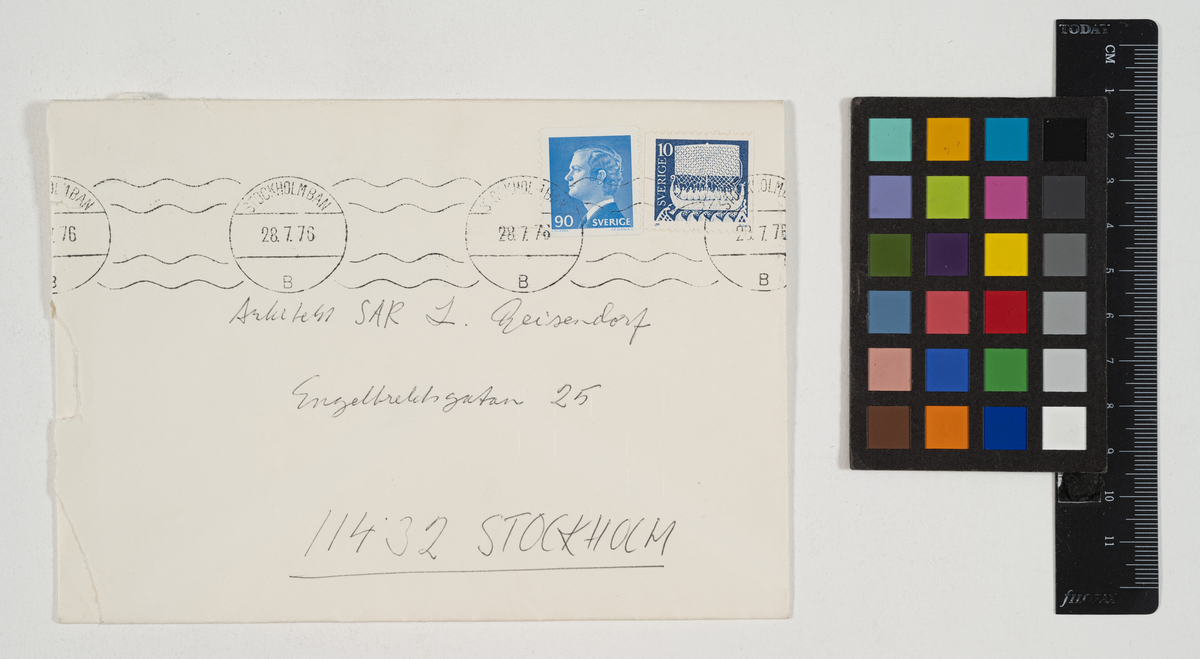 STOCKHOLM BAN
28.7.76
B
STOCKHOLM BAN
28.7.76
B
90 SVERIGE
SVERIGE 10
28.7.76
B
7.76
Arkitekt SAR L. Geisendorf
Engelbrektsgatan 25
11432 STOCKHOLM
TODAY
CM
1
2
3
4
5
6
7
8
9
10
11
filofax